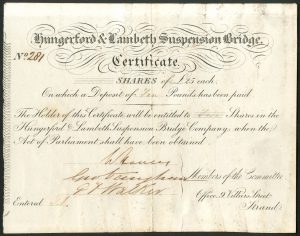 Hungerford & Lambeth Suspension Bridge.
Certificate.
No. 281
SHARES of £25 each.
On which a Deposit of Ten Pounds has been paid
The Holder of this Certificate will be entitled to Shares in the
Hungerford & Lambeth Suspension Bridge Company, when the
Act of Parliament shall have been obtained
Members of the Committee
Walker
Office, 9 Villiers Street
Strand
Entered